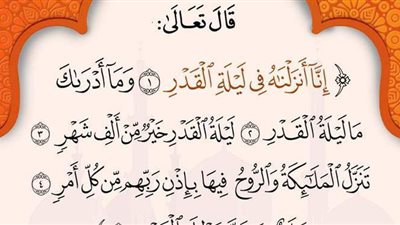 قَالَ تَعَالَىٰ:
﴿ إِنَّا أَنزَلْنَاهُ فِي لَيْلَةِ الْقَدْرِ ١ وَمَا أَدْرَاكَ
مَا لَيْلَةُ الْقَدْرِ ٢ لَيْلَةُ الْقَدْرِ خَيْرٌ مِّنْ أَلْفِ شَهْرٍ ٣
تَنَزَّلُ الْمَلَائِكَةُ وَالرُّوحُ فِيهَا بِإِذْنِ رَبِّهِم مِّن كُلِّ أَمْرٍ ٤